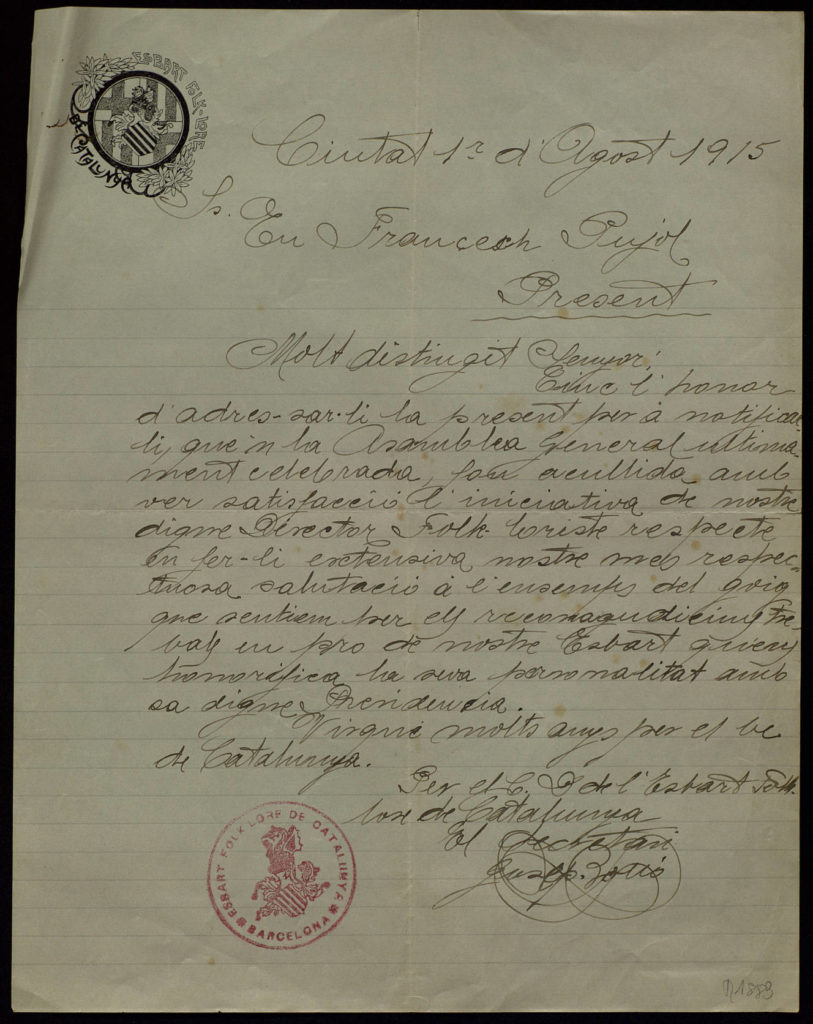 ESBART FOLK-LORE
DE CATALUNYA
Ciutat 1r d'Agost 1915
Sr. En Francesch Pujol
Present
Molt distingit Senyor:
Tinc l'honor
d'adres-sar-li la present per á notificar-
li, que'n la Asamblea General ultima-
ment celebrada, fou acullida amb
ver satisfacció l'iniciativa de nostre
digne Director Folk-loriste respecte
en fer-li extensiva nostre mes respec-
tuosa salutació á l'ensemps del goig
que sentiem per els
en pro de nostre Esbart quieny
honorifica la seva personalitat amb
sa digne Presidencia.
Visqué molts anys per el be
de Catalunya.
Per el C. D de l'Esbart Folk-
lore de Catalunya
El Secretari
Jusep
ESBART FOLK LORE DE CATALUNYA
BARCELONA